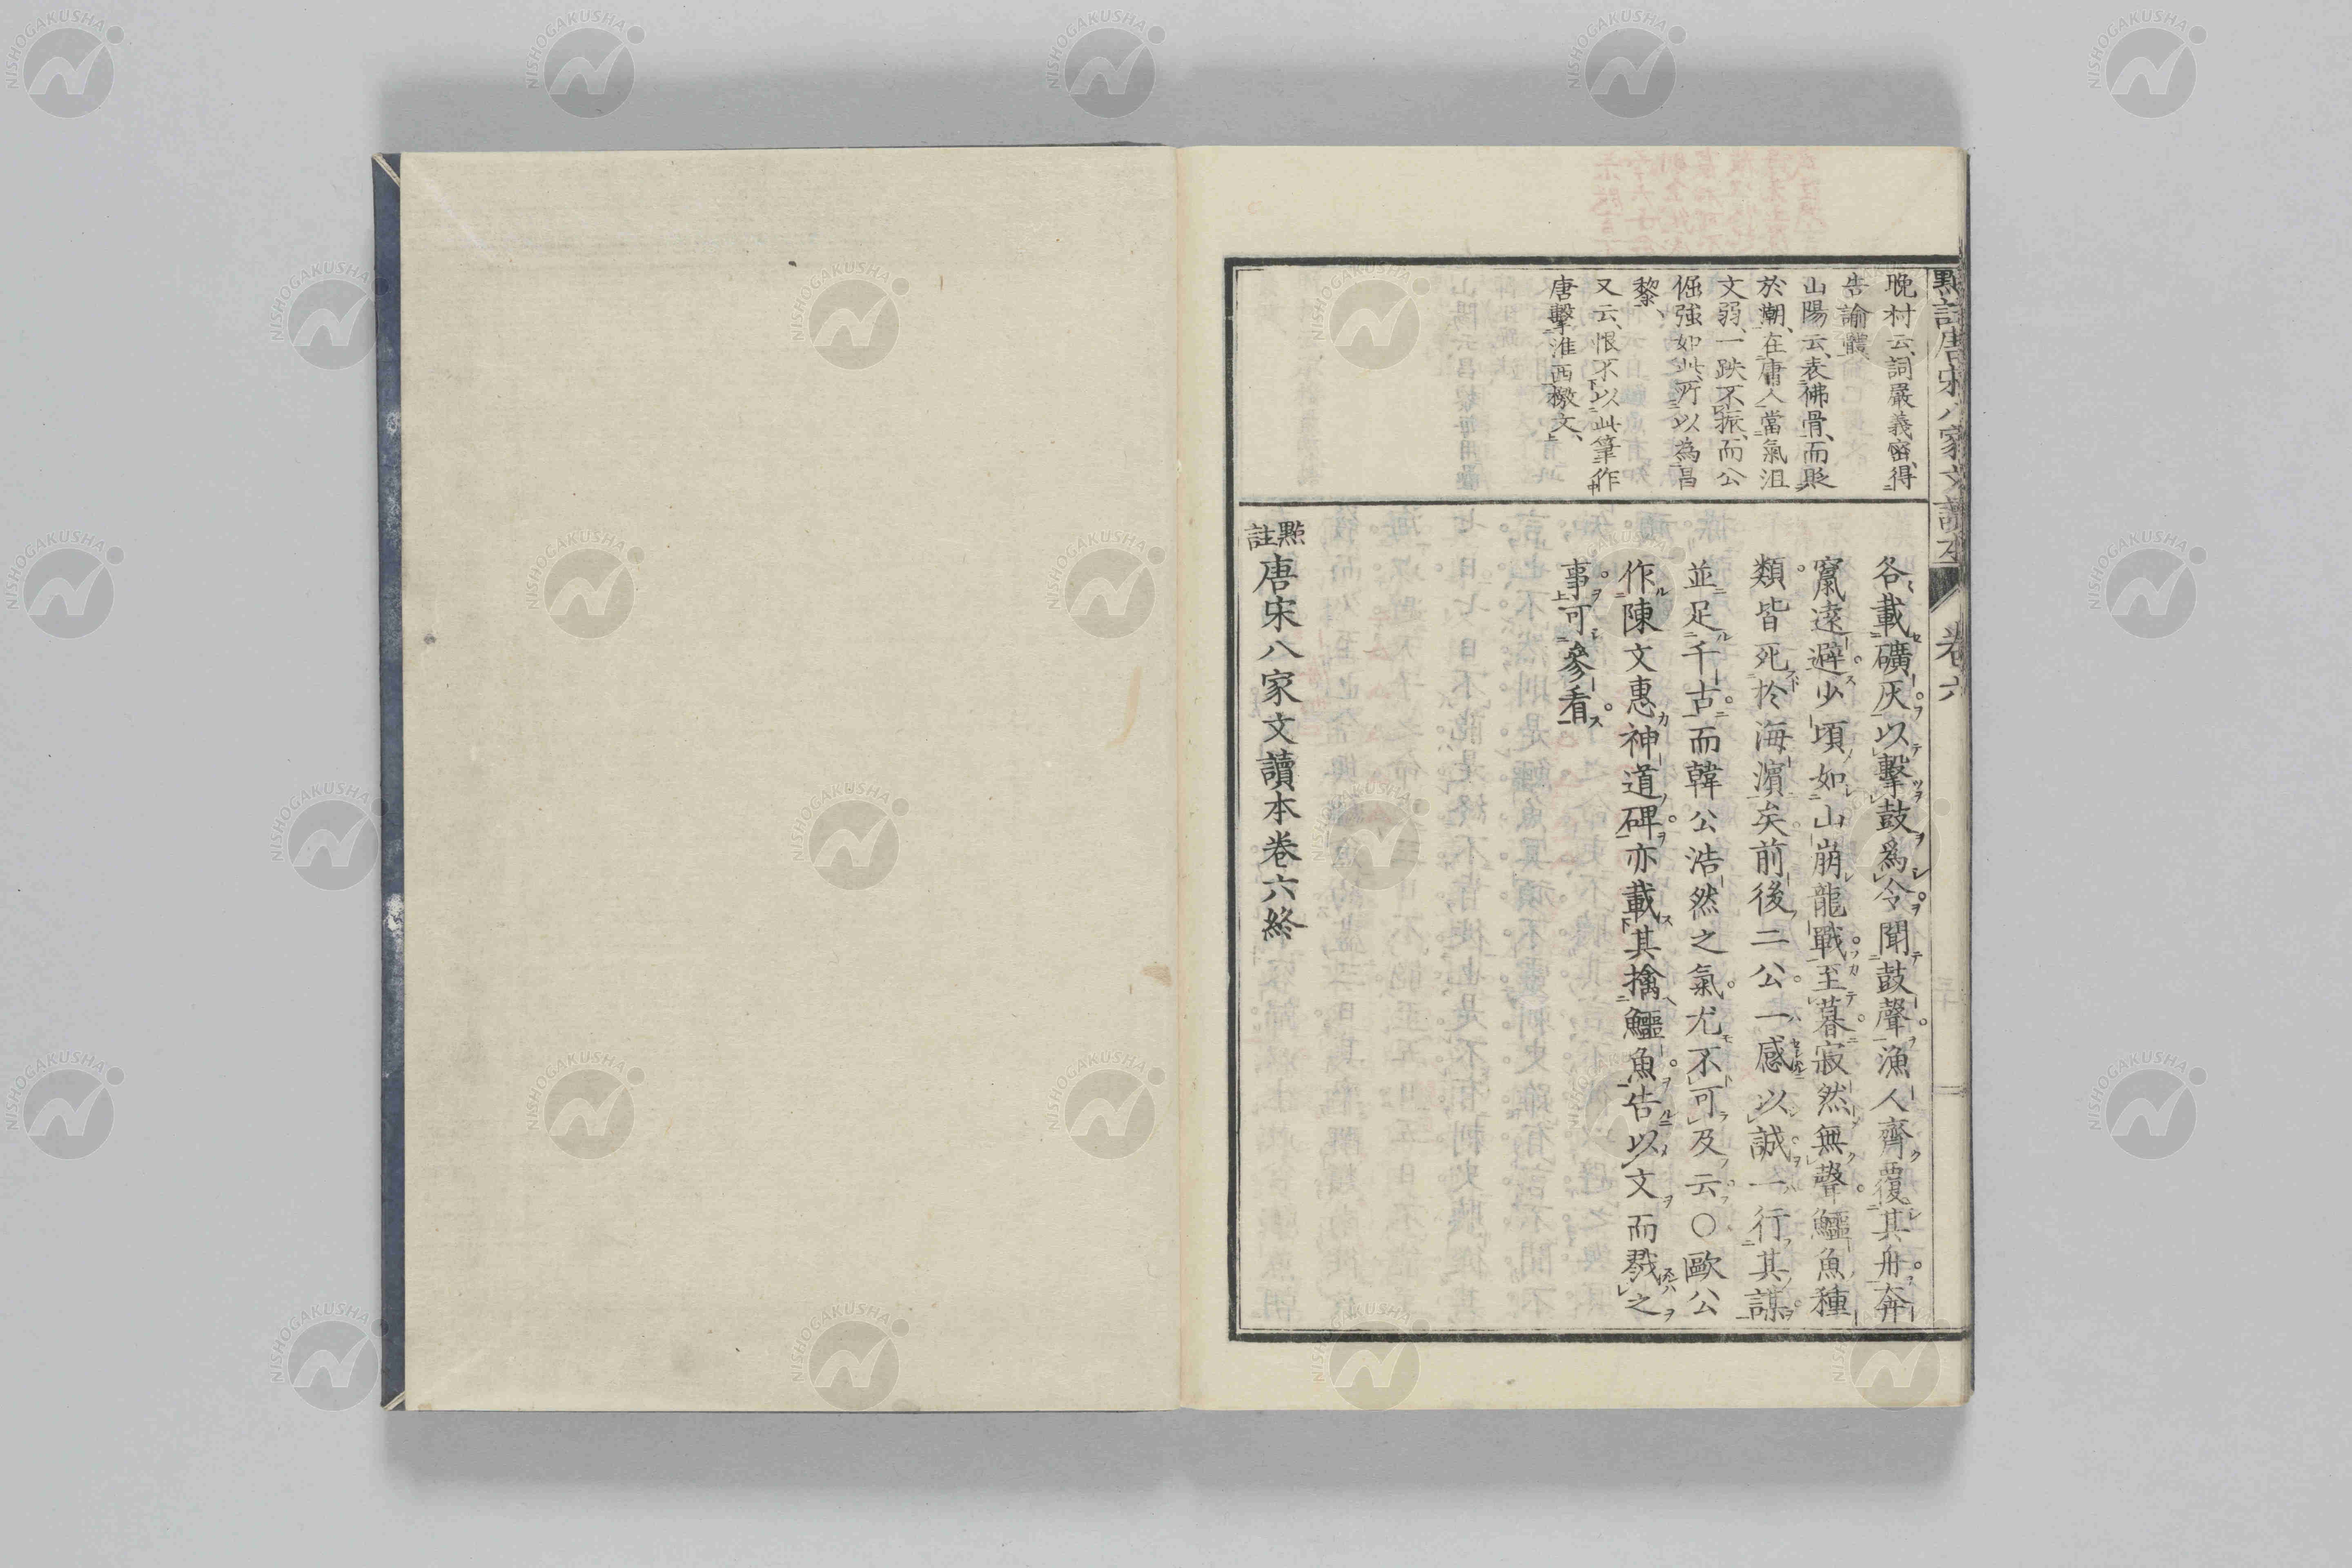 點註唐宋八家文讀本 卷六
晩村云、詞嚴義密、得
告諭體、
山陽云、表佛骨、而貶
於潮、在庸人當氣沮
文弱、一跌不振、而公
倔強如此、所以為昌
黎、
又云、恨不以此筆作
唐擊淮西檄文、
各載礦灰以擊鼓爲令聞鼓聲漁人齊覆其舟奔
竄遠避少頃如山崩龍戰至暮寂然無聲鱷魚種
類皆死於海濵矣前後二公一感以誠一行其謀
並足千古而韓公浩然之氣尤不可及云〇歐公
作陳文惠神道碑亦載其擒鱷魚告以文而戮之
事可參看
點註唐宋八家文讀本卷六終
NISHOGAKUSHA